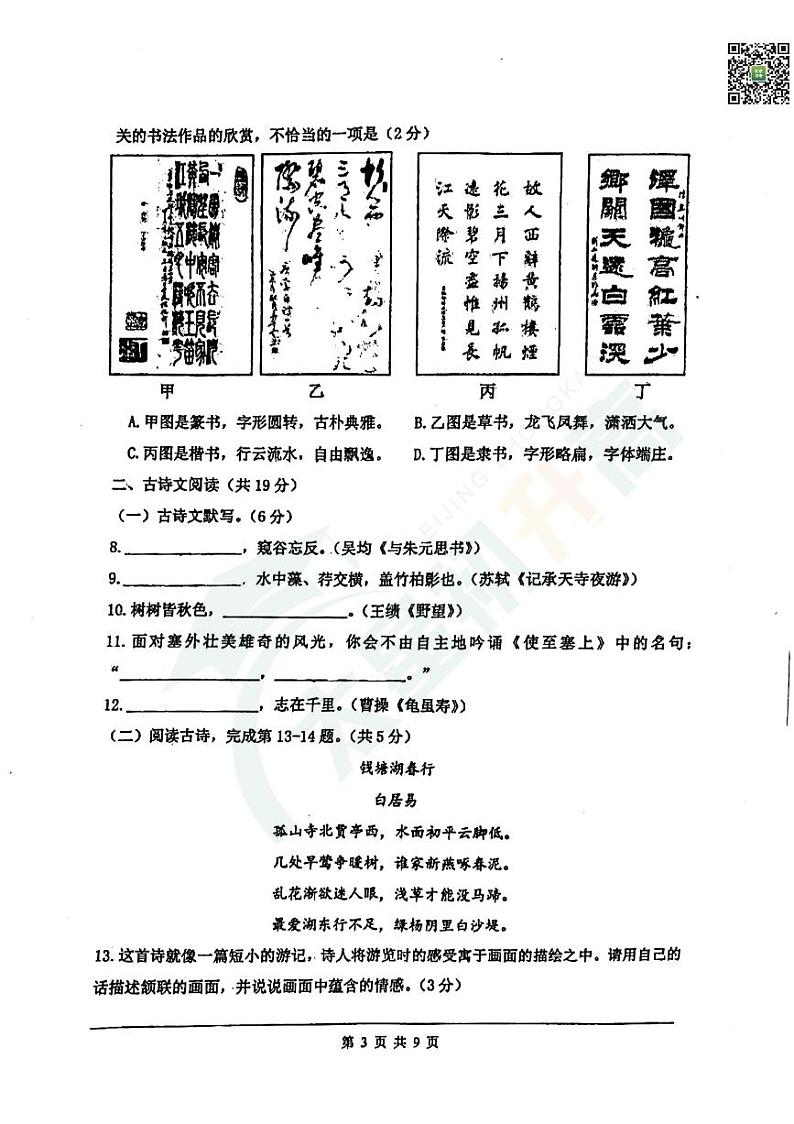 关的书法作品的欣赏，不恰当的一项是（2分）
故人西辭黃鶴樓煙
花三月下揚州孤帆
遠影碧空盡惟見長
江天際流
國高紅葉少
鄉關天遠白雲深
甲 乙 丙 丁
A. 甲图是篆书，字形圆转，古朴典雅。 B. 乙图是草书，龙飞凤舞，潇洒大气。
C. 丙图是楷书，行云流水，自由飘逸。 D. 丁图是隶书，字形略扁，字体端庄。
二、古诗文阅读（共19分）
（一）古诗文默写。（6分）
8.______________，窥谷忘反。（吴均《与朱元思书》）
9.______________．水中藻、荇交横，盖竹柏影也。（苏轼《记承天寺夜游》）
10. 树树皆秋色，______________。（王绩《野望》）
11. 面对塞外壮美雄奇的风光，你会不由自主地吟诵《使至塞上》中的名句：
“______________，______________。”
12.______________，志在千里。（曹操《龟虽寿》）
（二）阅读古诗，完成第13-14题。（共5分）
钱塘湖春行
白居易
孤山寺北贾亭西，水面初平云脚低。
几处早莺争暖树，谁家新燕啄春泥。
乱花渐欲迷人眼，浅草才能没马蹄。
最爱湖东行不足，绿杨阴里白沙堤。
13. 这首诗就像一篇短小的游记，诗人将游览时的感受寓于画面的描绘之中。请用自己的
话描述颔联的画面，并说说画面中蕴含的情感。（3分）
第 3 页 共 9 页